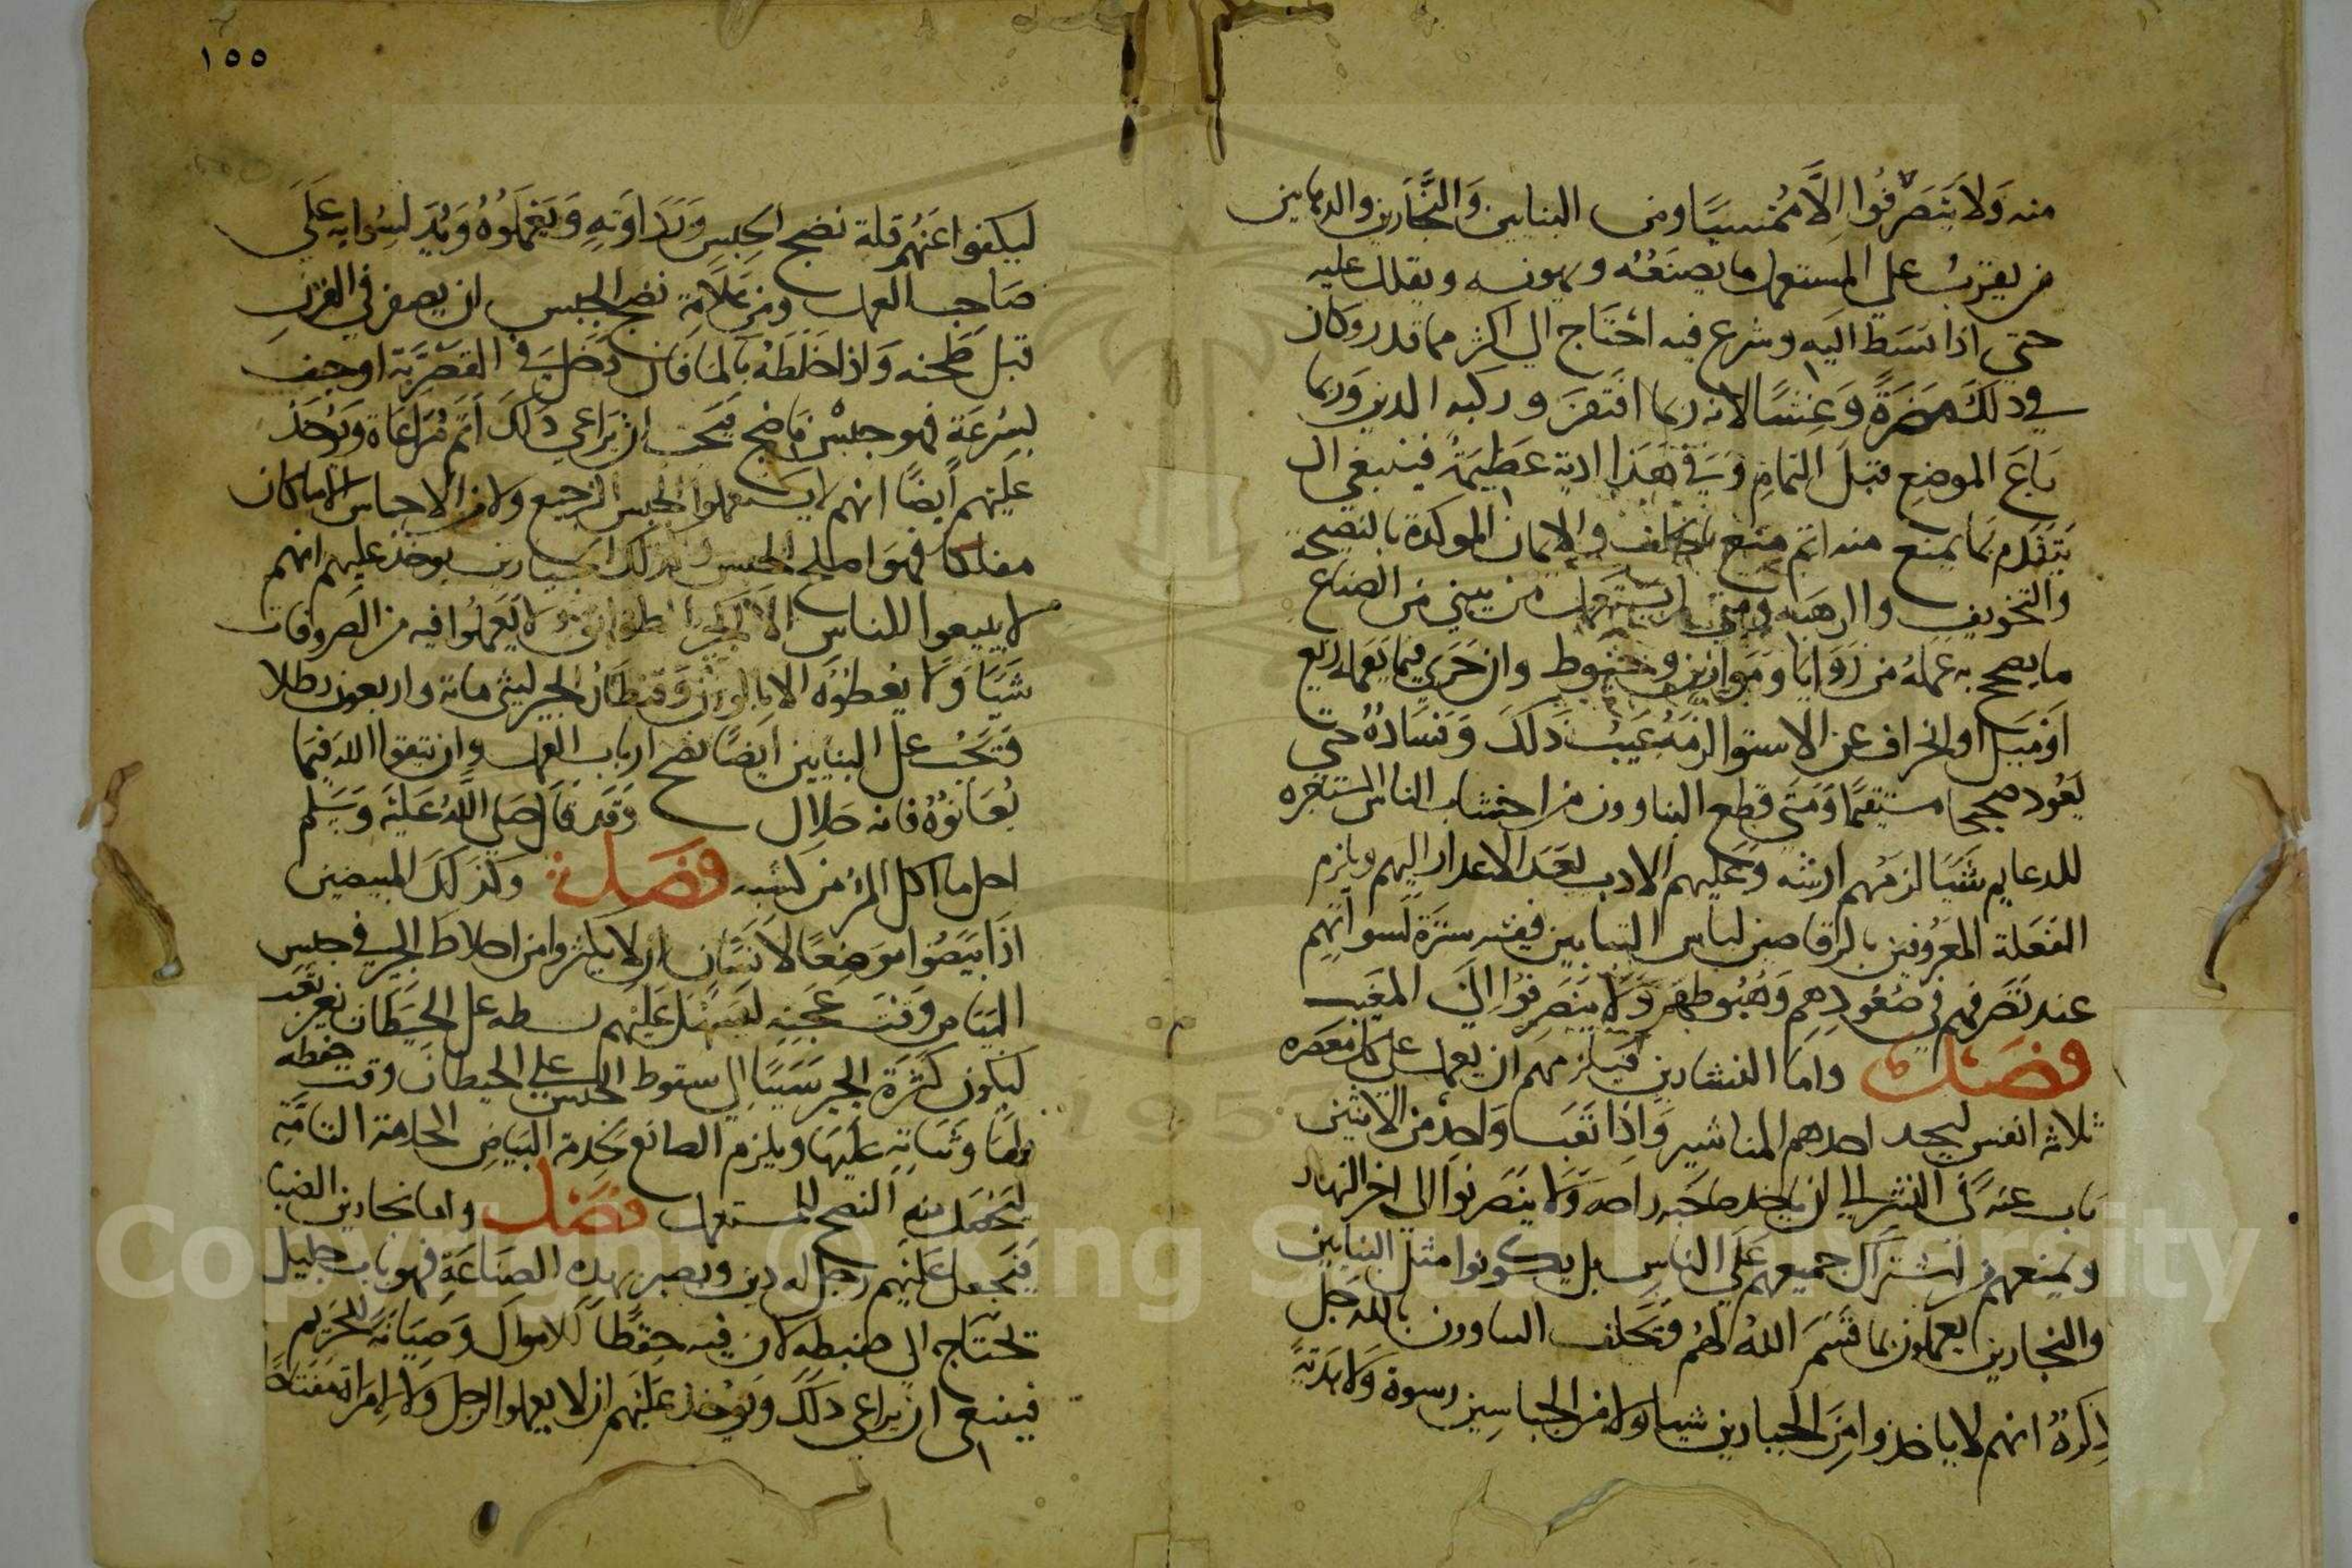 منه وَلاَ يَتَصَرفُوا اِلَّا مُمْسِيًا ومن البنايين وَالنَّجَّارين والدهانين
من يقرب على المستعمل ما يصنعُه ويهونه ويقلل عليه
حتى اذا بَسَط اليه وشرع فيه احْتَاج الى اكثر مما قدر وكان
في ذلك مَضَرَةً وَغِشًا لانه ربما افتقرَ وركبه الدين وربما
بَاعَ الموضع قبلَ التمامِ وَفي هَذَا اذية عَظِيمَةُ فينبغي ان
يَتَقَدم بمَا يمنع منه اتم منع بالحلف والايمان الموكدة بالنصيحة
والتخويف والرهبة ومتى لم يستعمل من يبني من الصناع
ما يصحح به عَملهُ من زَوَايَا وَمَوَازين وخيوط وان جَرى فيما يَعمله زيغ
اوْ مَيل او انحراف عن الاستوا لزمَهُ عَيبُ ذَلكَ وَفَسَادهُ حتى
يَعُود صحيحا مستقيمًا وَمَتى قطع البناوون من اخشاب الناس المستاجره
للدعايم شَيًا لزمَهم ارشه وَعَليهم الادب بَعَدَ الاعذار اليهم ويلزم
الفَعَلة المعرُوفين بالرقاصين لباس التبابين ففيه سترَة لسواتهم
عند تصَرفهم في صُعُودِهِم وَهُبُوطهم وَلاَ يَنصَرفوُا اِلَى المَغيب
فَصْل واما النشارين فيَلزمهم ان يعمل على كل معصره
ثلاثة انفس ليحد احدهم المناشير وَاذَا تعَبَ وَاحِد من الاثنين
ناب عنه في النشر الى ان ياخذ صاحبه راحه وَلا ينصَرفوا الى اخر النهار
ويمنعهم من اشتراك جميعهم عَلى الناسِ بل يكونوا مثل البنايين
والنجارين يعملون بما قَسَمَ اللهُ لهُم وَتحَلف البناوون بالله جَل
ذِكرهُ انهم لا ياخذوا مِنَ الجيارين شيا ولا من الجباسِين رسوة وَلا هَدَيَّةً
١٥٥
ليكفوا عَنهُم قلة نضج الجبس وَرَدَاوَتهِ وَيَعْمَلوُهُ وَيُدَلِسُوا بهِ عَلَى
صَاحِب العمل ومن عَلاَمَة نضج الجبس ان يصفر في الفرنِ
قبل طَحنه وَاذا خَلَطَهُ بَالمَا فان دَخلَ في القَصْرِيَّة او جف
بسُرعَة فهو جبسْ نَاضج فيَجب ان يراعى ذَلكَ اَتَم مُرَاعَاة وَيُوخذ
عليهم ايضًا انهم لا يستعملوا الجبس الرجيع ولا من الاجباس الا ما كان
فهوَ اصلح الجبس وكذلك الجيارين يوخذ عليهم انهم
لا يبيعوا للناس الا الجير وَلا يَعملوا فيه من الصروفات
شَيًا وَلا يعْطوُه الا بالوزن وَقنطَارُ الجير ليثي مائة واربعون رطلا
وَيجَبُ عَلى البنايين ايضًا نصح ارباب العمل وان يتقوا اللهَ فيمَا
يُعَانوُهُ فانه حَلال وَقد قال صَلى اللَّهُ عَليْهَ وَسَلم
احل ما اكل المَرُ من كسْبه فَصْل وَكذَلكَ المبيضين
اذَا بَيَّضُوا مَوضِعًا لانسَان ان لا يكثروا من اخلاط الجير في جبس
البيَاض وَقتَ عَجْنِهِ ليَسْهل عَليَهم بسطه على الحيطَان بغير تعَب
ليكون كَثرَة الجير سَبَبًا الى سقوط الجبس على الحيطان وقت جفوفه
وثبَاتِهِ عَليَهَا ويلزم الصانع بخدمة البَيَاض الخدمة التامَّة
ليَحْصُل منهِ النصح للمستعمل فَصْل واما نجارين الضبَاب
فَيَجْعَل عَليَهم رَجل له دين وبصير بهذِهِ الصَنَاعَةِ فهو باب جليل
تحتَاج الى ضبطه لان فيه حِفظًا للاموَال وَصِيَانَة الحَريم
فينبغى ان يراعى ذلكَ ويُؤخذ عَليَهم ان لا يعملوا لرجل وَلا امرَاة مفتَاحًا